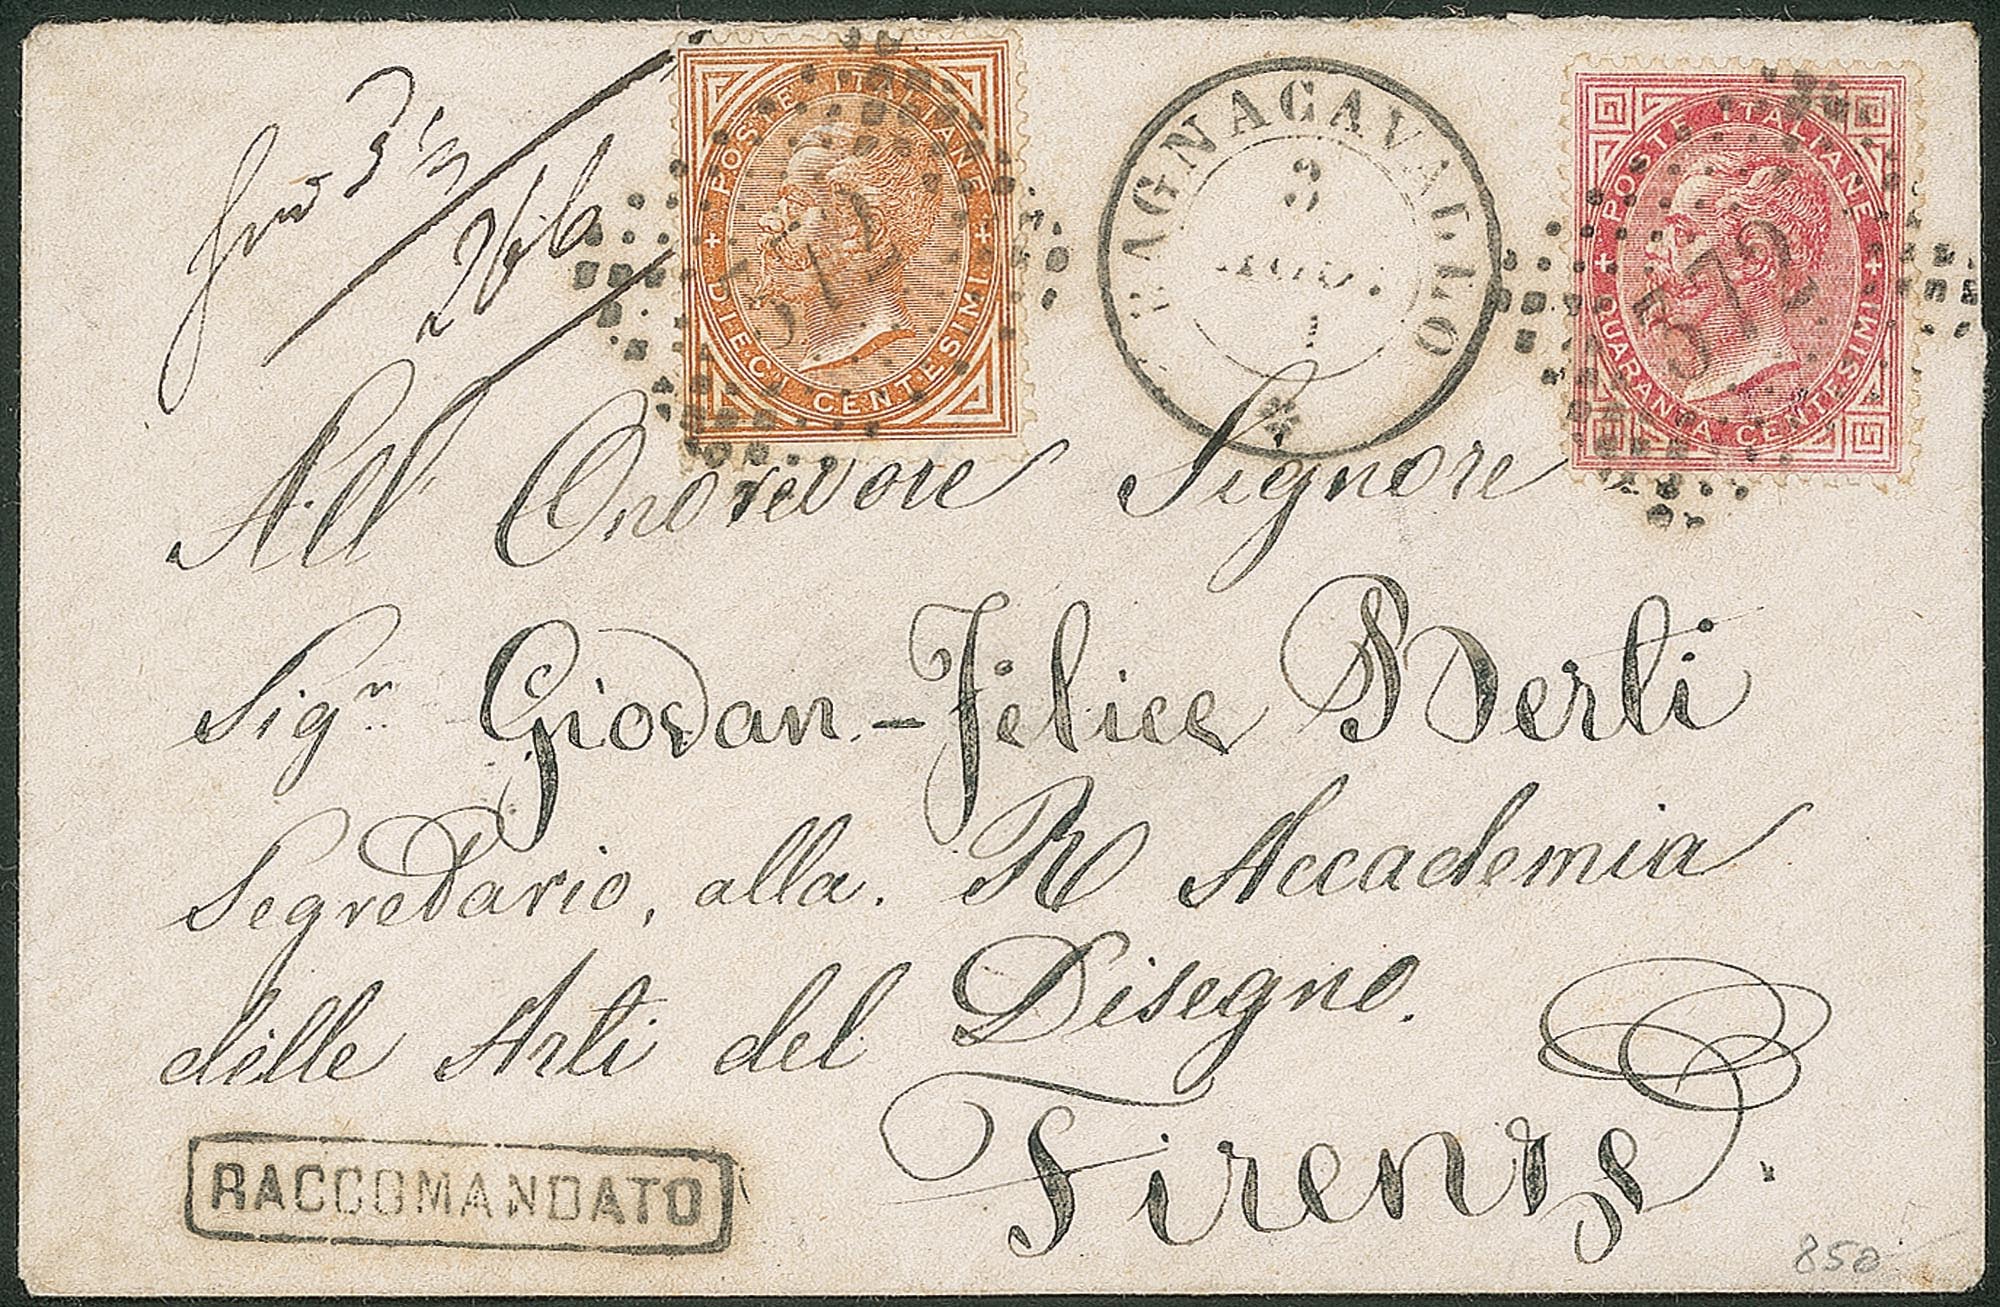 POSTE ITALIANE
DIECI CENTESIMI
572
BAGNACAVALLO
3
1
POSTE ITALIANE
QUARANTA CENTESIMI
572
All' Onorevole Signore
Sigr Giovan-Felice Berti
Segretario, alla R Accademia
delle Arti del Disegno.
Firenze.
RACCOMANDATO
850